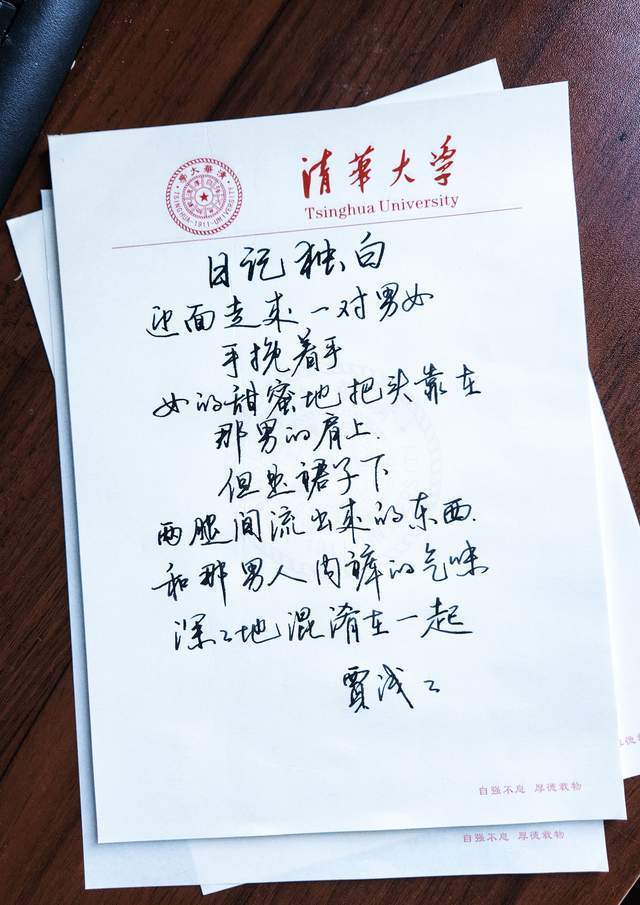 清華大學
TSINGHUA-1911-UNIVERSITY
清華大学
Tsinghua University
日记独白
迎面走来一对男女
手挽着手
女的甜蜜地把头靠在
那男的肩上.
但是裙子下
两腿间流出来的东西.
和那男人内裤的气味
深〻地混淆在一起
贾浅〻
自强不息 厚德载物
自强不息 厚德载物